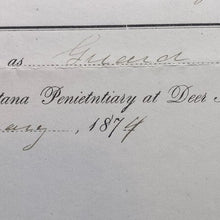 as Guard
tana Penietntiary at Deer
ary, 1874